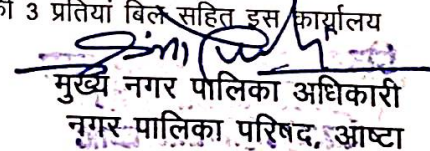 की 3 प्रतियां बिल सहित इस कार्यालय
मुख्य नगर पालिका अधिकारी
नगर पालिका परिषद, आष्टा